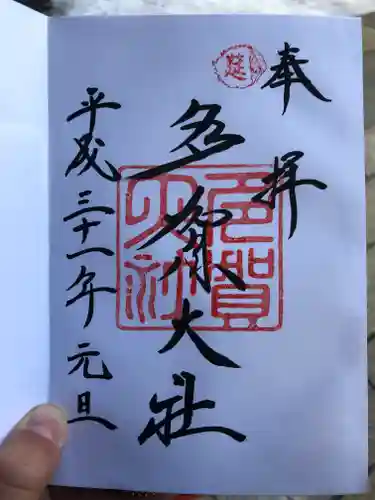 奉拝
延
多賀大社
多賀大社
平成三十一年元旦